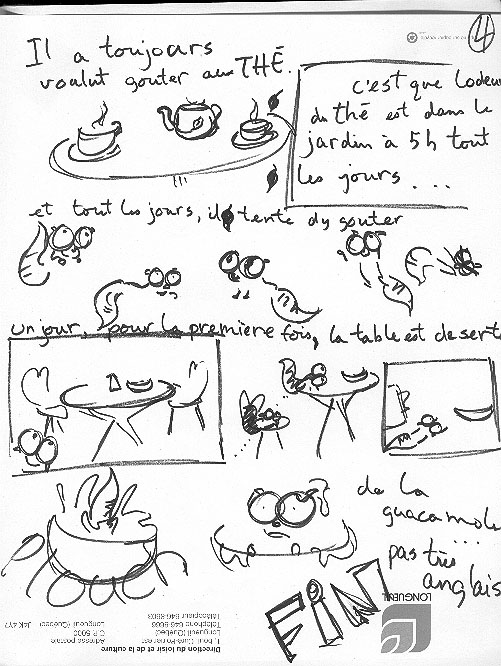 4
Il a toujours
voulut gouter au THÉ.
c'est que lodeur
du thé est dans le
jardin à 5h tout
les jours...
et tout les jours, il tente dy gouter
un jour, pour la première fois, la table est deserte
PLOUF
de la
guacamole
...
pas très
anglais
FIN
LONGUEUIL
Direction du loisir et de la culture
Longueuil (Québec)
Adresse postale
C.P. 5000
Longueuil (Québec)